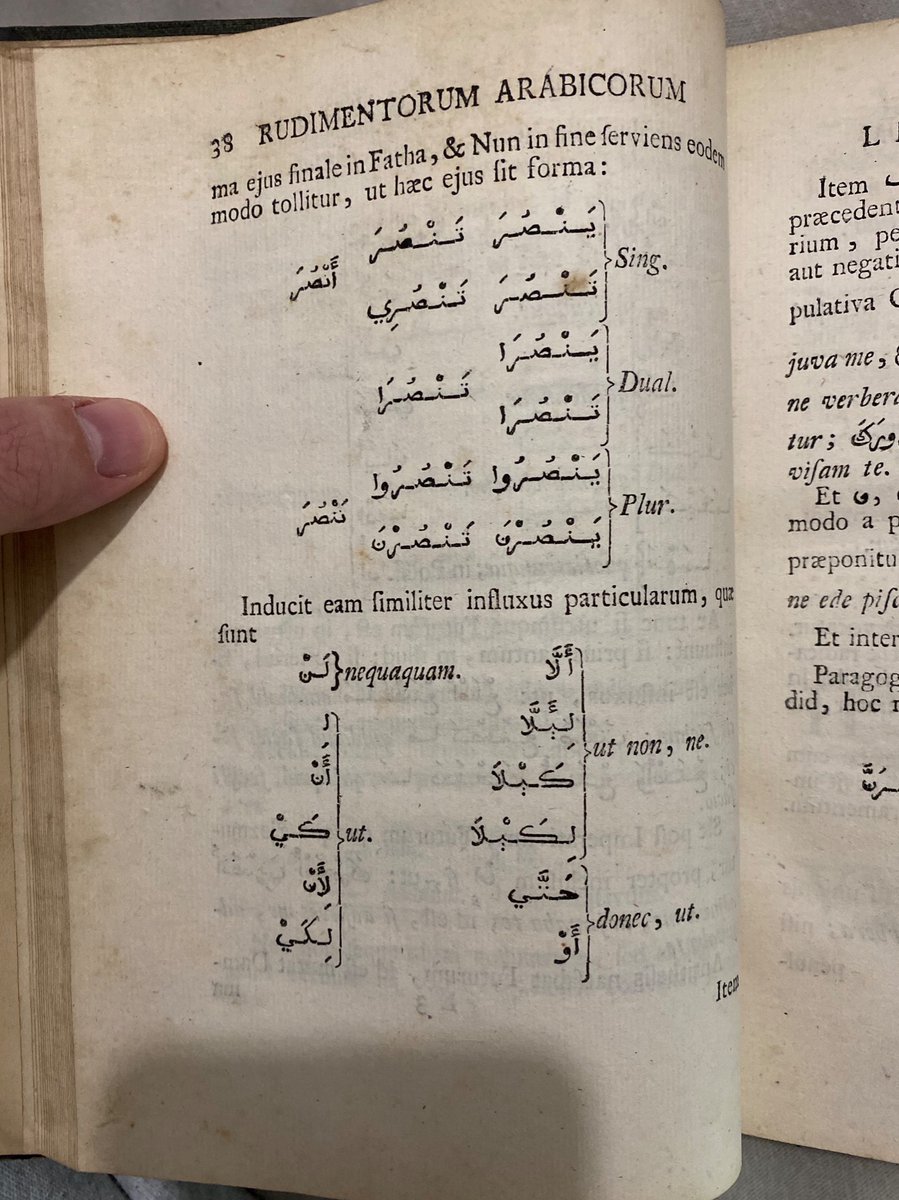 38 RUDIMENTORUM ARABICORUM
ma ejus finale in Fatha, & Nun in fine ſerviens eodem
modo tollitur, ut hæc ejus ſit forma:
يَنْصُرَ تَنْصُرَ
Sing.
أَنْصُرَ
تَنْصُرَ تَنْصُرِي
يَنْصُرَا
تَنْصُرَا
Dual.
تَنْصُرَا
يَنْصُرُوا تَنْصُرُوا
Plur.
نَنْصُرَ
يَنْصُرْنَ تَنْصُرْنَ
Inducit eam ſimiliter influxus particularum, quæ
ſunt
لَنْ } nequaquam.
لِ
أَنْ
كَيْ
ut.
لِأَنْ
لِكَيْ
أَلَّا
لِئَلَّا
ut non, ne.
كَيْلَا
لِكَيْلَا
حَتَّي
donec, ut.
أَوْ
Item
Item
præcedent
rium, pe
aut negati
pulativa
juva me,
ne verbera
tur;
viſam te.
Et
modo a p
præponitu
ne ede piſc
Et inter
Paragog
did, hoc